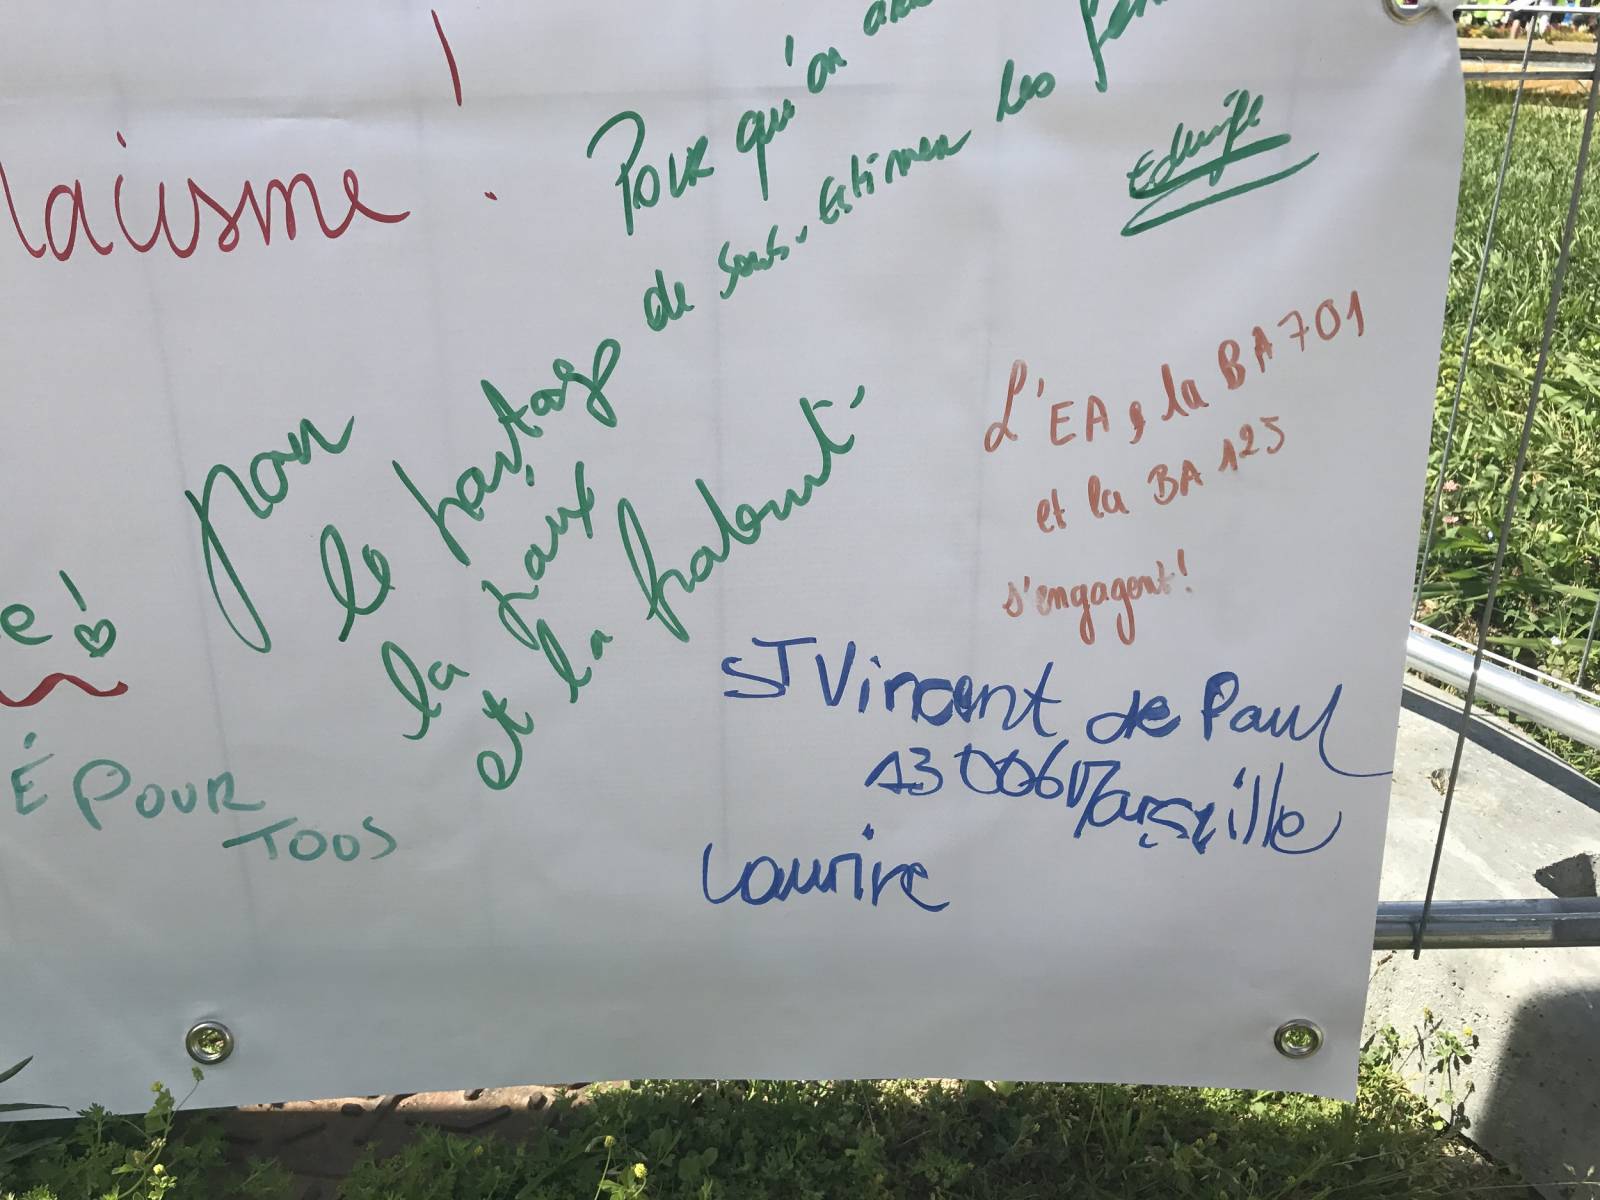 !
Pour qu'on
de sous-estimer les
Edwige
pour
le partage
la paix
et la fraternité
L'EA, la BA 701
et la BA 125
s'engagent!
ST Vincent de Paul
13006 Marseille
e!
É POUR
TOUS